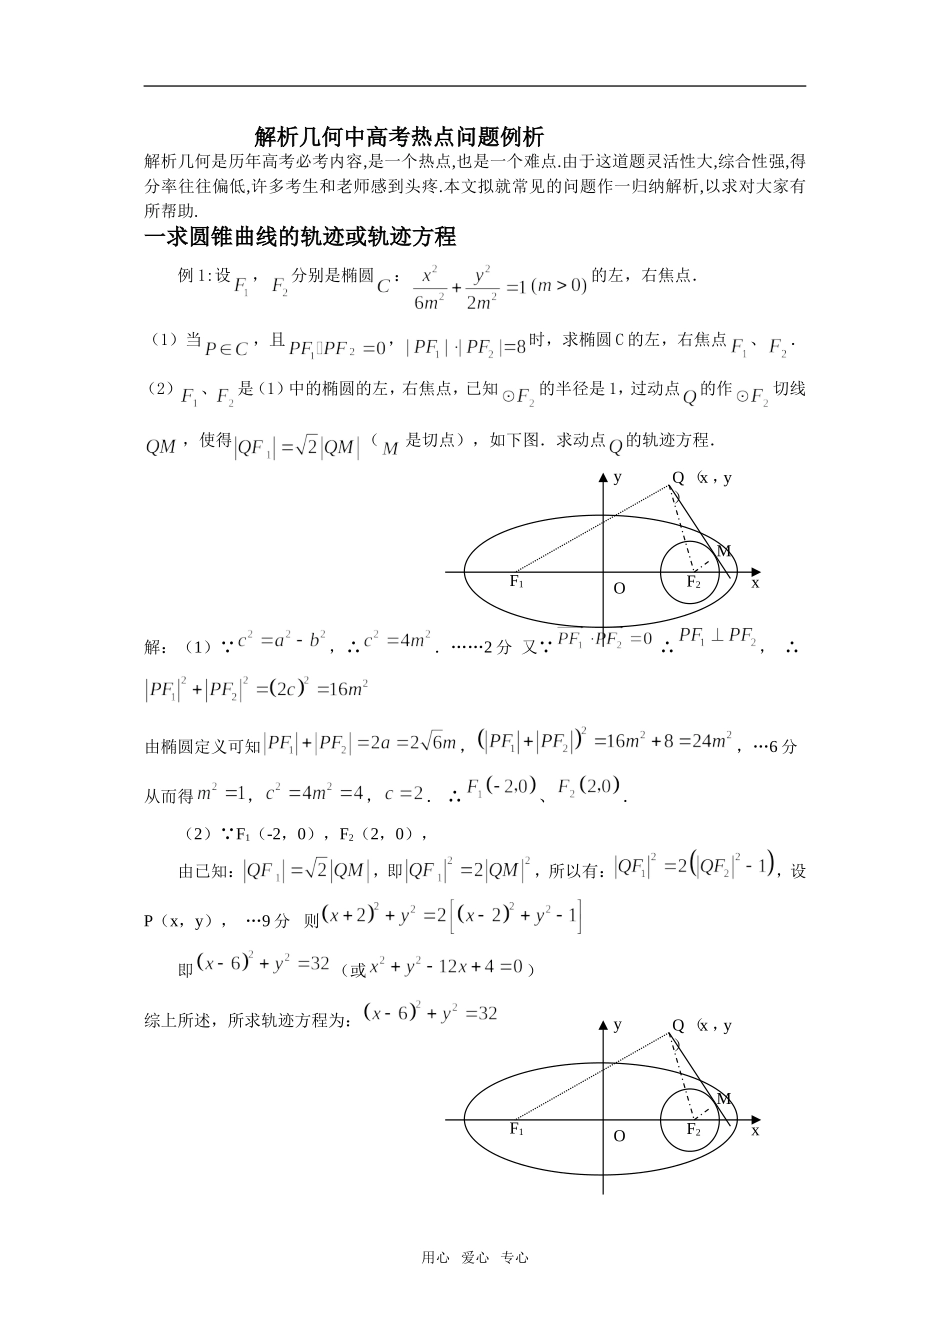 解析几何中高考热点问题例析
解析几何是历年高考必考内容,是一个热点,也是一个难点.由于这道题灵活性大,综合性强,得
分率往往偏低,许多考生和老师感到头疼.本文拟就常见的问题作一归纳解析,以求对大家有
所帮助.
一求圆锥曲线的轨迹或轨迹方程
例 1:设 F₁ , F₂ 分别是椭圆 C : x²/6m² + y²/2m² =1 (m>0) 的左，右焦点．
（1）当 P∈C ，且 PF₁▯PF₂=0 ， |PF₁|·|PF₂|=8 时，求椭圆 C 的左，右焦点 F₁ 、 F₂ ．
（2） F₁ 、 F₂ 是（1）中的椭圆的左，右焦点，已知 ⊙F₂ 的半径是 1，过动点 Q 的作 ⊙F₂ 切线
QM ，使得 |QF₁|=√2|QM| （ M 是切点），如下图．求动点 Q 的轨迹方程．
y Q（x，y
）
M
F₁ O F₂ x
解：（1）∵ c²=a²-b² ，∴ c²=4m² ．……2 分 又∵ PF₁·PF₂=0 ∴ PF₁⊥PF₂ ， ∴
|PF₁|²+|PF₂|²=(2c)²=16m²
由椭圆定义可知 |PF₁|+|PF₂|=2a=2√6m ， (|PF₁|+|PF₂|)²=16m²+8=24m² ，…6 分
从而得 m²=1 ， c²=4m²=4 ， c=2 ． ∴ F₁(-2,0) 、 F₂(2,0) ．
（2）∵F₁（-2，0），F₂（2，0），
由已知： |QF₁|=√2|QM| ，即 |QF₁|²=2|QM|² ，所以有： |QF₁|²=2(|QF₂|²-1) ，设
P（x，y）， …9 分 则 (x+2)²+y²=2[(x-2)²+y²-1]
即 (x-6)²+y²=32 （或 x²+y²-12x+4=0 ）
综上所述，所求轨迹方程为： (x-6)²+y²=32
y Q（x，y
）
M
F₁ O F₂ x
用心 爱心 专心